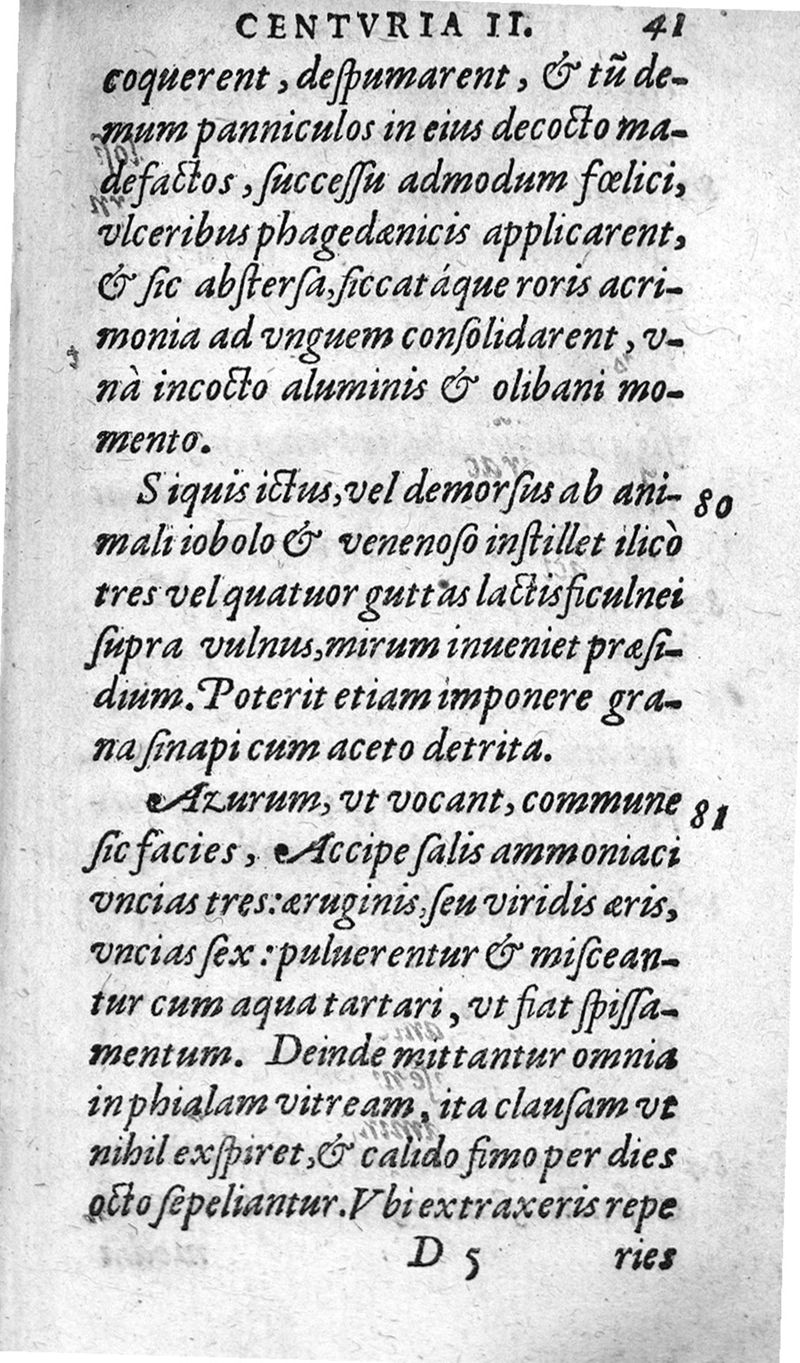 CENTVRIA II. 41
coquerent, deſpumarent, & tũ de-
mum panniculos in eius decocto ma-
defactos, ſucceſſu admodum fœlici,
vlceribus phagedænicis applicarent,
& ſic abſterſa, ſiccatáque roris acri-
monia ad vnguem conſolidarent, v-
nà incocto aluminis & olibani mo-
mento.
Siquis ictus, vel demorſus ab ani- 80
mali iobolo & venenoſo inſtillet ilicò
tres vel quatuor guttas lactis ficulnei
ſupra vulnus, mirum inueniet præſi-
dium. Poterit etiam imponere gra-
na ſinapi cum aceto detrita.
Azurum, vt vocant, commune 81
ſic facies, Accipe ſalis ammoniaci
vncias tres: æruginis, ſeu viridis æris,
vncias ſex: puluerentur & miſcean-
tur cum aqua tartari, vt fiat ſpiſſa-
mentum. Deinde mittantur omnia
in phialam vitream, ita clauſam vt
nihil exſpiret, & calido fimo per dies
octo ſepeliantur. Vbi extraxeris repe
D 5 ries